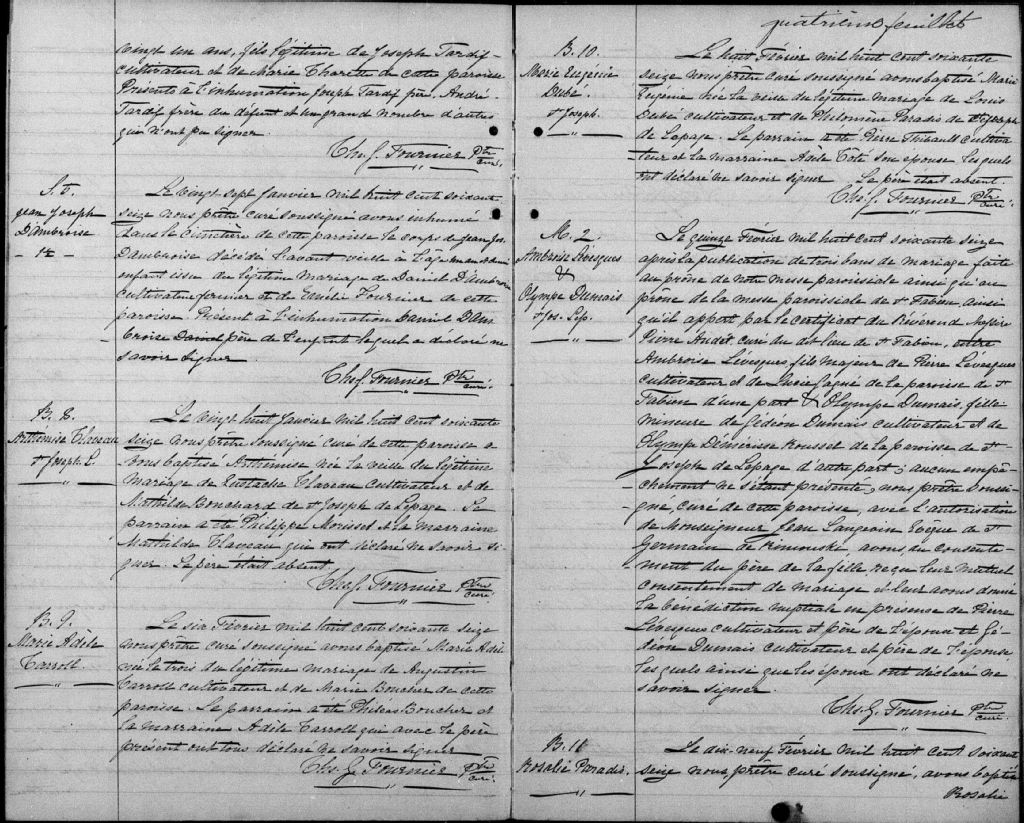 vingt un ans, fils légitime de Joseph Tardif
cultivateur et de Marie Therette de cette paroisse
Présents à l'inhumation Joseph Tardif pèr. André
Tardif frère du défunt et un grand nombre d'autres
qui n'ont pu signer.
Chs. G. Fournier Ptre
curé.
S. 5.
Jean Joseph
D'Ambroise
Le vingt sept Janvier mil huit cent soixante
seize nous prêtre curé soussigné avons inhumé
dans le cimetière de cette paroisse le corps de Jean Jos.
D'Ambroise décédé l'avant veille à l'age
enfant issu du légitime mariage de Daniel D'Ambroise
cultivateur fermier et de Emélie Fournier de cette
paroisse. Présent à l'inhumation Daniel D'Am
broise père de l'enfant lequel a déclaré ne
savoir signer
Chs. G. Fournier Ptre
curé.
B. 8.
Arthémise Claveau
St Joseph L.
Le vingt huit Janvier mil huit cent soixante
seize nous prêtre soussigné curé de cette paroisse a
vons baptisé Arthemise née la veille du légitime
mariage de Eustache Claveau cultivateur et de
Mathilde Bouchard de St Joseph de Lepage. Le
parrain a été Philippe Morisset et la marraine
Mathilde Claveau qui ont déclaré ne savoir si-
gner. Le père était absent.
Chs. G. Fournier Ptre
curé.
B. 9.
Marie Adèle
Carroll.
Le six Février mil huit cent soixante seize
nous prêtre curé soussigné avons baptisé Marie Adèle
née le trois du légitime mariage de Augustin
Carroll cultivateur et de Marie Boucher de cette
paroisse. Le parrain a été Philéas Boucher et
la marraine Adèle Carroll qui avec le père
présent ont tous déclaré ne savoir signer
Chs. G. Fournier Ptre
curé.
quatrième feuillet
B. 10.
Marie Eugénie
Dubé.
St Joseph.
Le huit Février mil huit cent soixante
seize nous prêtre curé soussigné avons baptisé Marie
Eugénie née la veille du légitime mariage de Louis
Dubé cultivateur et de Philomène Paradis de St Joseph
de Lepage. Le parrain a été Pierre Thibault cultiva-
teur et la marraine Adèle Côté son épouse lesquels
ont déclaré ne savoir signer. Le père était absent.
Chs. G. Fournier Ptre
curé.
M. 2.
Ambroise Lévesques
&
Olympe Dumais
St Jos. Lep.
Le quinze Février mil huit cent soixante seize
après la publication de trois bans de mariage faite
au prône de notre messe paroissiale ainsi qu'au
prône de la messe paroissiale de St Fabien, ainsi
qu'il appert par le certificat du Révérend Messire
Pierre Audet curé du dit lieu de St Fabien, entre
Ambroise Lévesques, fils majeur de Pierre Lévesques
cultivateur et de Lucie Gagné de la paroisse de St
Fabien d'une part & Olympe Dumais, fille
mineure de Gédéon Dumais cultivateur et de
Olympe Démérise Rousset de la paroisse de St
Joseph de Lepage d'autre part; aucun empê-
chement ne s'étant présenté, nous prêtre soussi-
gné, curé de cette paroisse, avec l'autorisation
de Monseigneur Jean Langevin Evêque de St
Germain de Rimouski, avons, du consente-
ment du père de la fille, reçu leur mutuel
consentement de mariage et leur avons donné
la bénédiction nuptiale en présence de Pierre
Lévesques cultivateur et père de l'époux et Gé-
déon Dumais cultivateur et père de l'épouse
lesquels ainsi que les époux ont déclaré ne
savoir signer.
Chs. G. Fournier Ptre
curé.
B. 11
Rosalie Paradis.
Le dix-neuf Février mil huit cent soixante
seize nous prêtre curé soussigné, avons baptisé
Rosalie